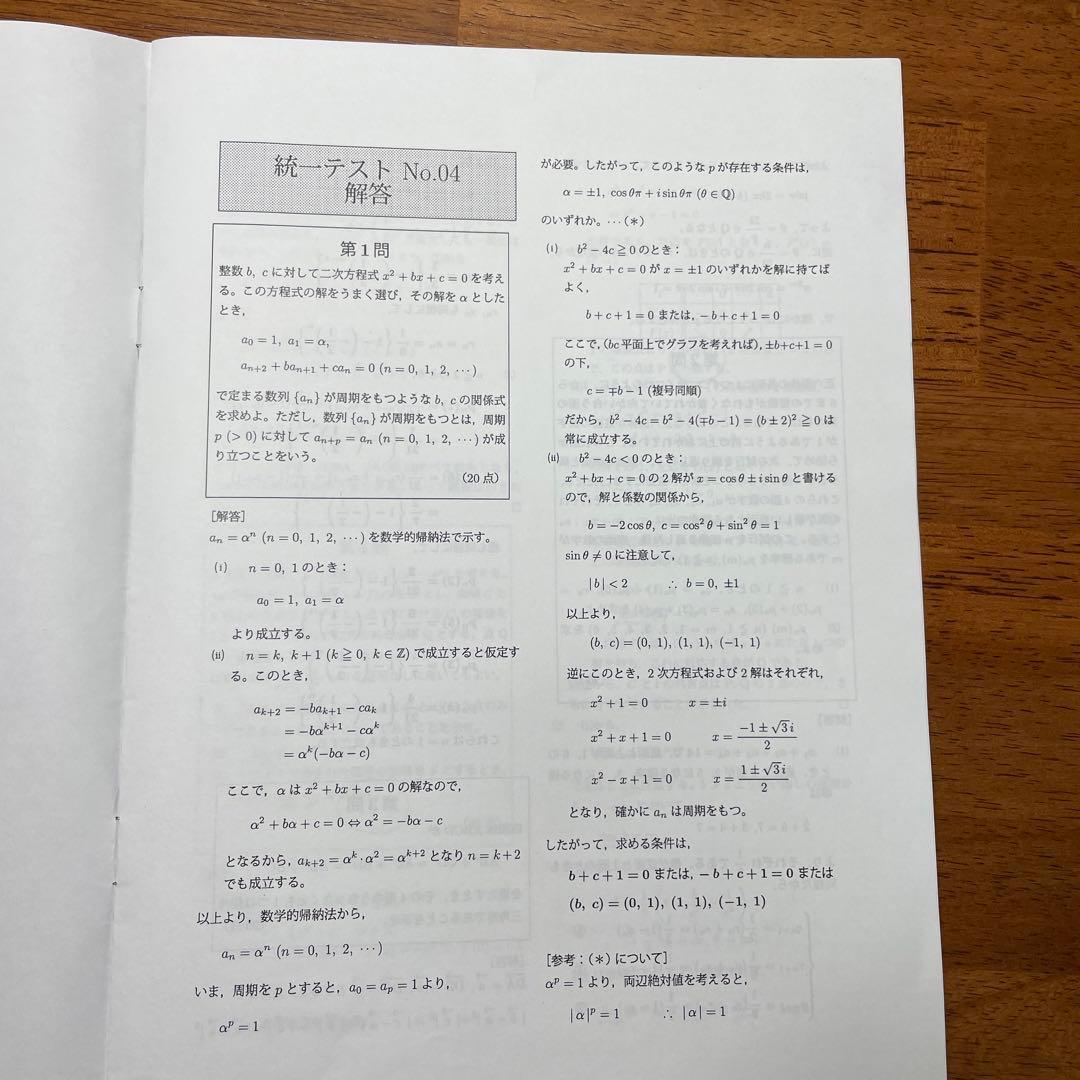 統一テスト No.04
解答
第1問
整数 b, c に対して二次方程式 x² + bx + c = 0 を考え
る。この方程式の解をうまく選び，その解を α とした
とき，
a₀ = 1, a₁ = α,
aₙ₊₂ + baₙ₊₁ + caₙ = 0 (n = 0, 1, 2, ⋯)
で定まる数列 {aₙ} が周期をもつような b, c の関係式
を求めよ。ただし，数列 {aₙ} が周期をもつとは，周期
p (> 0) に対して aₙ₊ₚ = aₙ (n = 0, 1, 2, ⋯) が成
り立つことをいう。
(20 点)
[解答]
aₙ = αⁿ (n = 0, 1, 2, ⋯) を数学的帰納法で示す。
(i) n = 0, 1 のとき：
a₀ = 1, a₁ = α
より成立する。
(ii) n = k, k + 1 (k ≧ 0, k ∈ ℤ) で成立すると仮定す
る。このとき，
aₖ₊₂ = −baₖ₊₁ − caₖ
= −bαᵏ⁺¹ − cαᵏ
= αᵏ(−bα − c)
ここで，α は x² + bx + c = 0 の解なので，
α² + bα + c = 0 ⇔ α² = −bα − c
となるから，aₖ₊₂ = αᵏ · α² = αᵏ⁺² となり n = k + 2
でも成立する。
以上より，数学的帰納法から，
aₙ = αⁿ (n = 0, 1, 2, ⋯)
いま，周期を p とすると，a₀ = aₚ = 1 より，
αᵖ = 1
が必要。したがって，このような p が存在する条件は，
α = ±1, cos θπ + i sin θπ (θ ∈ ℚ)
のいずれか。⋯ (∗)
(i) b² − 4c ≧ 0 のとき：
x² + bx + c = 0 が x = ±1 のいずれかを解に持てば
よく，
b + c + 1 = 0 または，−b + c + 1 = 0
ここで，(bc 平面上でグラフを考えれば)，±b+c+1 = 0
の下，
c = ∓b − 1 (複号同順)
だから，b² − 4c = b² − 4(∓b − 1) = (b ± 2)² ≧ 0 は
常に成立する。
(ii) b² − 4c < 0 のとき：
x² + bx + c = 0 の 2 解が x = cos θ ± i sin θ と書ける
ので，解と係数の関係から，
b = −2 cos θ, c = cos² θ + sin² θ = 1
sin θ ≠ 0 に注意して，
|b| < 2 ∴ b = 0, ±1
以上より，
(b, c) = (0, 1), (1, 1), (−1, 1)
逆にこのとき，2 次方程式および 2 解はそれぞれ，
x² + 1 = 0 x = ±i
x² + x + 1 = 0 x = (−1 ± √3 i)/2
x² − x + 1 = 0 x = (1 ± √3 i)/2
となり，確かに aₙ は周期をもつ。
したがって，求める条件は，
b + c + 1 = 0 または，−b + c + 1 = 0 または
(b, c) = (0, 1), (1, 1), (−1, 1)
[参考：(∗) について]
αᵖ = 1 より，両辺絶対値を考えると，
|α|ᵖ = 1 ∴ |α| = 1